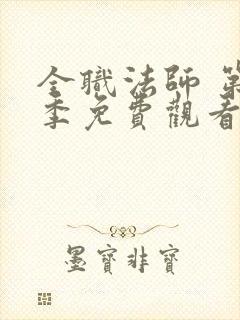 全職法師 第
季免費觀看
墨寶非寶